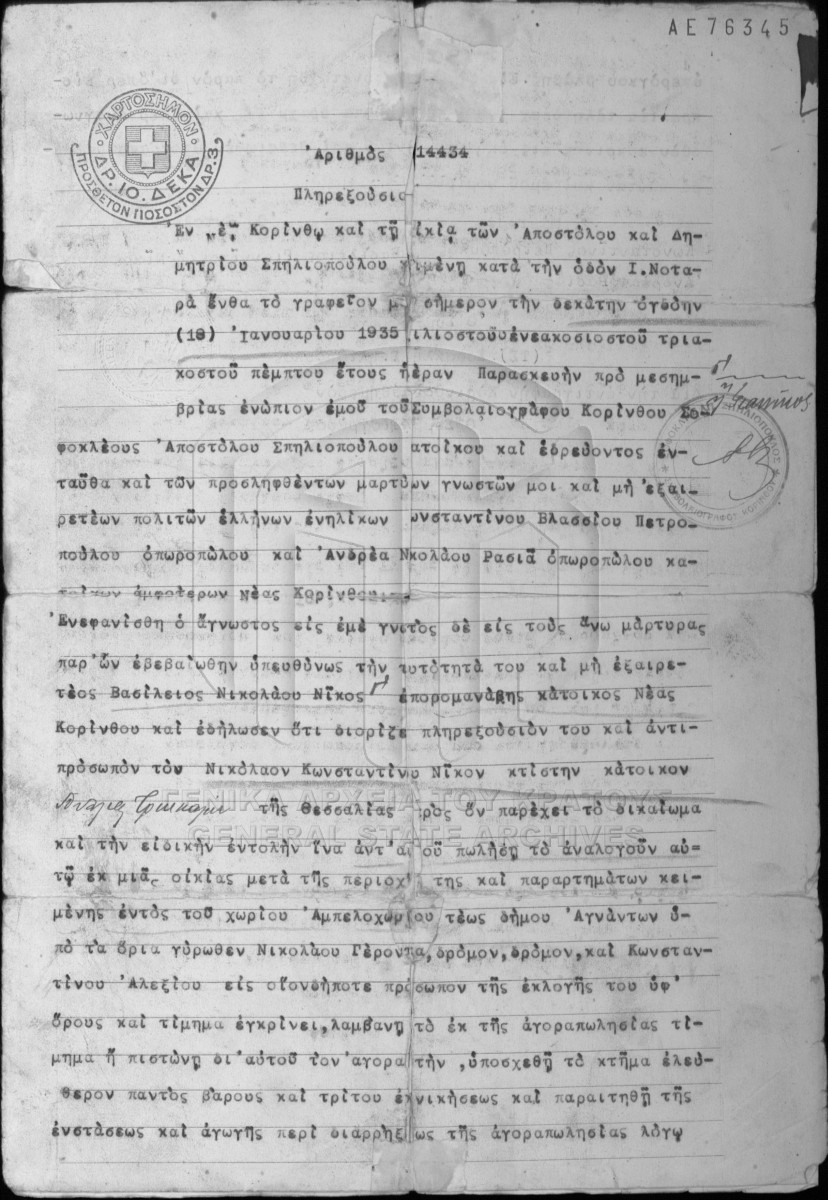 ΑΕ76345
ΧΑΡΤΟΣΗΜΟΝ
ΔΡ. 10. ΔΕΚΑ
ΠΡΟΣΘΕΤΟΝ ΠΟΣΟΣΤΟΝ ΔΡ. 3.
Ἀριθμὸς 14434
Πληρεξούσιο
Ἐν Κορίνθῳ καὶ τῇ ἰκίᾳ τῶν Ἀποστόλου καὶ Δη-
μητρίου Σπηλιοπούλου ιμένῃ κατὰ τὴν ὁδὸν Ι.Νοτα-
ρᾶ ἔνθα τὸ γραφεῖον μ σήμερον τὴν δεκάτην ὀγδόην
(18) Ἰανουαρίου 1935 ιλιοστοῦ ἐνεακοσιοστοῦ τρια-
κοστοῦ πέμπτου ἔτους ἡέραν Παρασκευὴν πρὸ μεσημ-
βρίας ἐνώπιον ἐμοῦ τοῦ Συμβολαιογράφου Κορίνθου Σο-
φοκλέους Ἀποστόλου Σπηλιοπούλου ατοίκου καὶ ἑδρεύοντος ἐν-
ταῦθα καὶ τῶν προσληφθέντων μαρτύων γνωστῶν μοι καὶ μὴ ἐξαι-
ρετέων πολιτῶν ἑλλήνων ἐνηλίκων ωνσταντίνου Βλασσίου Πετρο-
πούλου ὀπωροπώλου καὶ Ἀνδρέα Νκολάου Ρασιᾶ ὀπωροπώλου κα-
τοίκων ἀμφοτέρων Νέας Κορίνθου
Ἐνεφανίσθη ὁ ἄγνωστος εἰς ἐμὲ γντὸς δὲ εἰς τοὺς ἄνω μάρτυρας
παρ' ὧν ἐβεβαιώθην ὑπευθύνως τὴν τυτότητά του καὶ μὴ ἐξαιρε-
τέος Βασίλειος Νικολάου Νῖκος ἐπορομανάβης κάτοικος Νέας
Κορίνθου καὶ ἐδήλωσεν ὅτι διορίζε πληρεξούσιόν του καὶ ἀντι-
πρόσωπόν του Νικόλαον Κωνσταντίνυ Νῖκον κτίστην κάτοικον
τῆς Θεσσαλίας πρὸς ὅν παρέχει τὸ δικαίωμα
καὶ τὴν εἰδικὴν ἐντολὴν ἵνα ἀντ' αοῦ πωλήσῃ τὸ ἀναλογοῦν αὐ-
τῷ ἐκ μιᾶς οἰκίας μετὰ τῆς περιοχῆ της καὶ παραρτημάτων κει-
μένης ἐντὸς τοῦ χωρίου Ἀμπελοχωρίου τέως δήμου Ἀγνάντων ὑ-
πὸ τὰ ὅρια γύρωθεν Νικολάου Γέροντα,δρόμον,δρόμον,καὶ Κωνσταν-
τίνου Ἀλεξίου εἰς οἱονδήποτε πρόσωπον τῆς ἐκλογῆς του ὑφ'
ὅρους καὶ τίμημα ἐγκρίνει,λαμβάνῃ τὸ ἐκ τῆς ἀγοραπωλησίας τί-
μημα ἤ πιστώνῃ δι' αὐτοῦ τὸν ἀγορατὴν ,ὑποσχεθῇ τὸ κτῆμα ἐλεύ-
θερον παντὸς βάρους καὶ τρίτου ἐκνικήσεως καὶ παραιτηθῇ τῆς
ἐνστάσεως καὶ ἀγωγῆς περὶ διαρρήξεως τῆς ἀγοραπωλησίας λόγῳ
ΓΕΝΙΚΑ ΑΡΧΕΙΑ ΤΟΥ ΚΡΑΤΟΥΣ
GENERAL STATE ARCHIVES